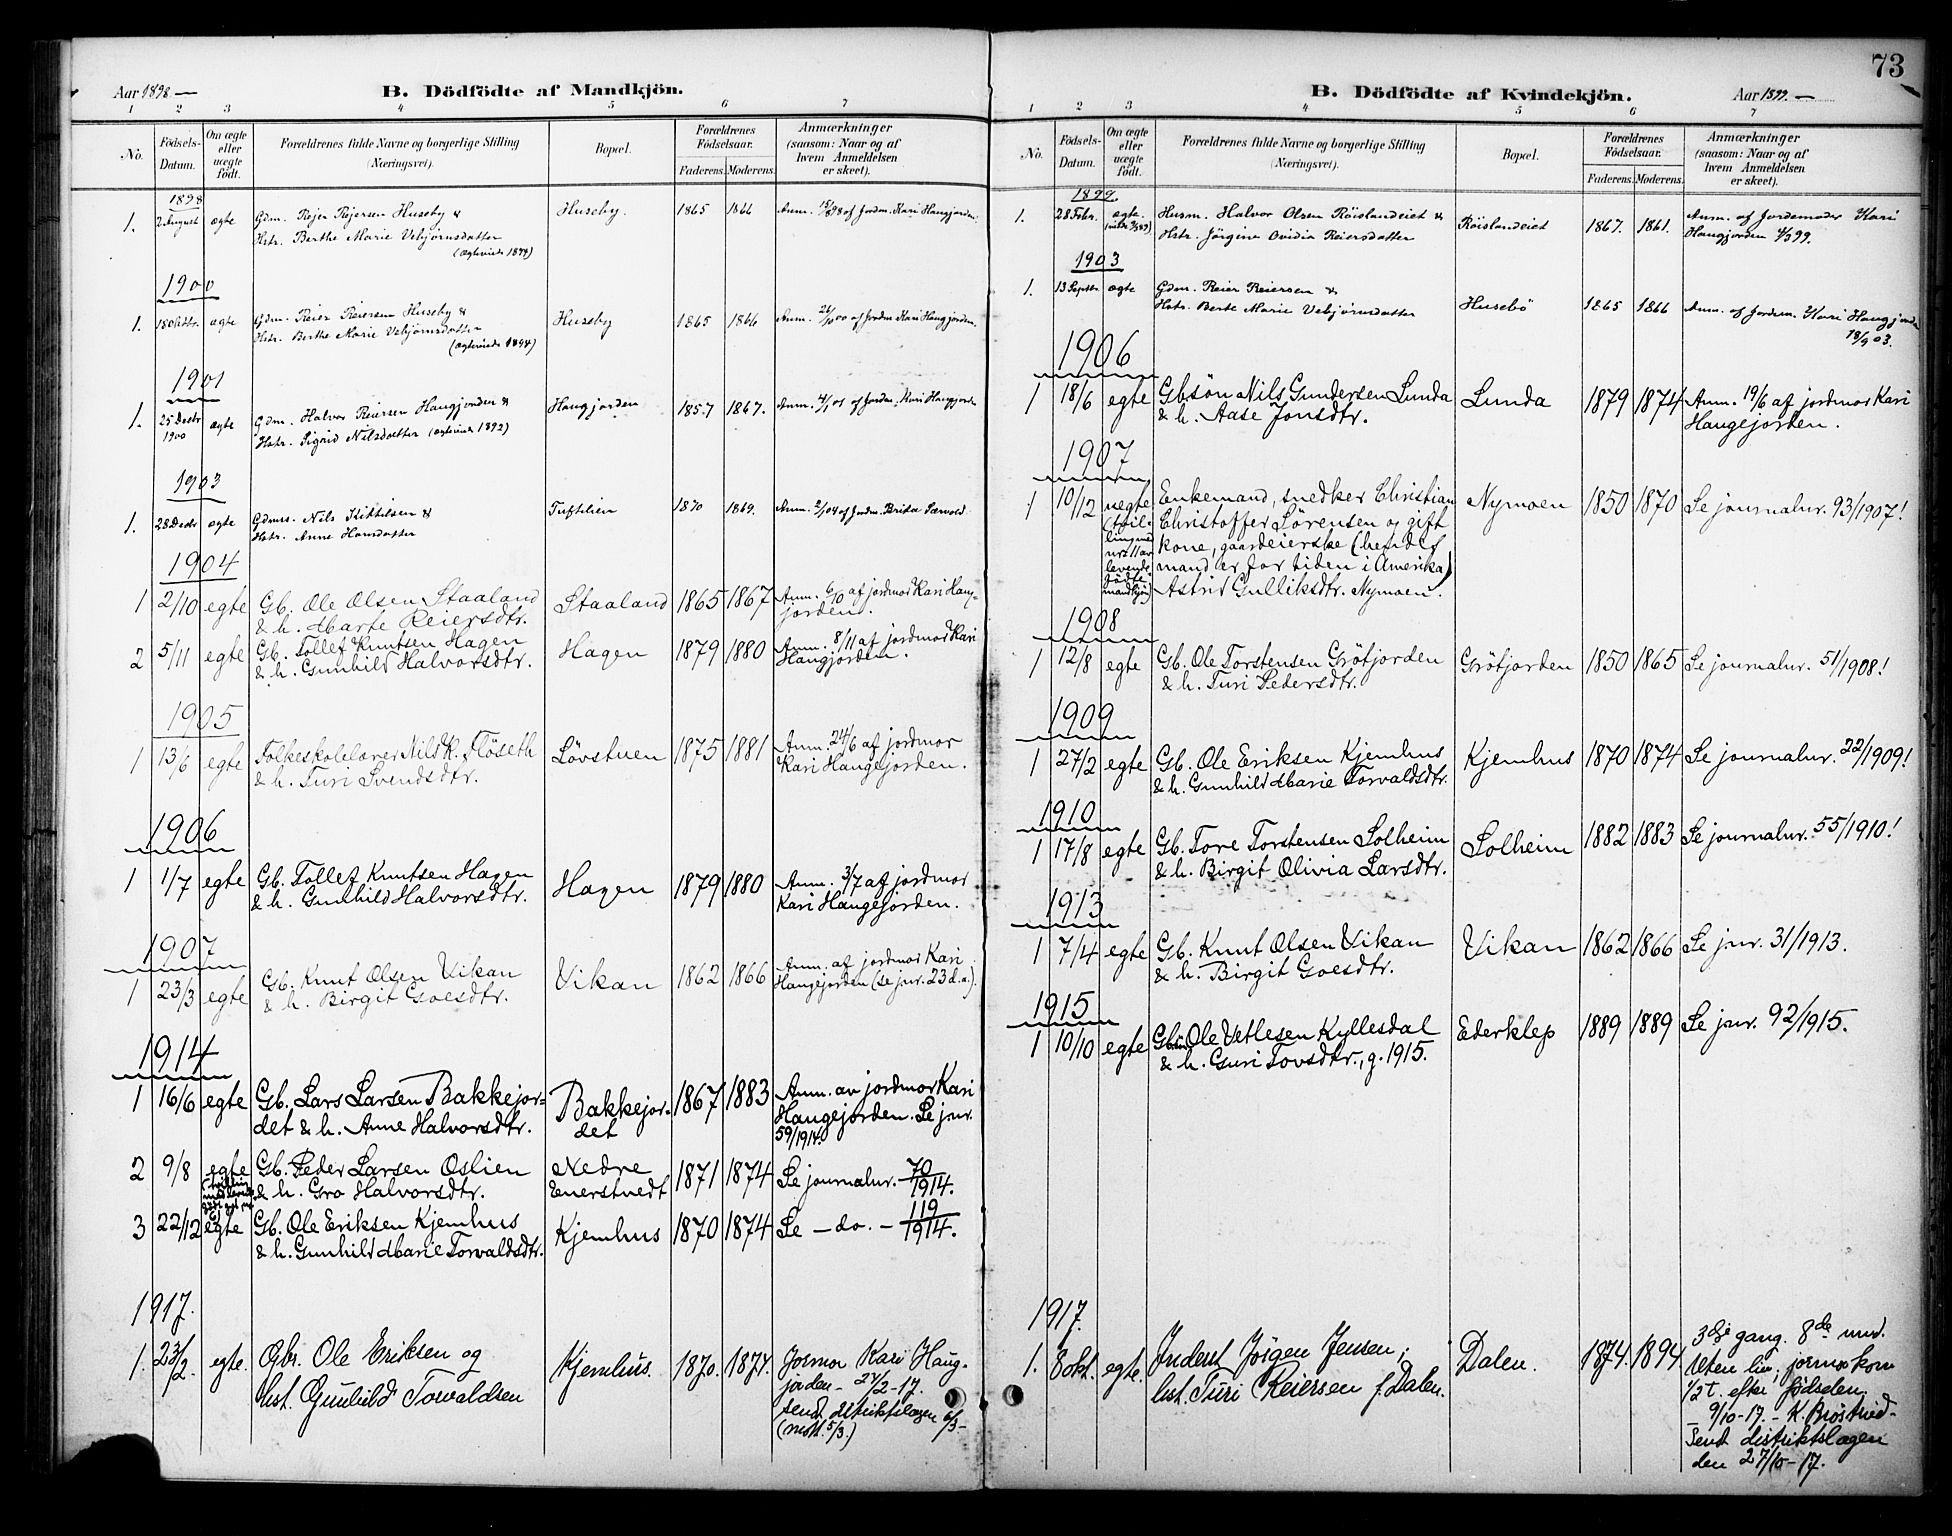 Aar 1898 —
B. Dödfödte af Mandkjön.
1 2 3 4 5 6 7
No.
Födsels-Datum.
Om ægte eller uægte födt.
Forældrenes fulde Navne og borgerlige Stilling (Næringsvei).
Bopæl.
Forældrenes Födselsaar.
Faderens. Moderens.
Anmærkninger (saasom: Naar og af hvem Anmeldelsen er skeet).
1898
1. 2 August ægte Gdm. Reier Reiersen Huseby & Huseby. 1865 1866 Anm. af Jordm. Kari Haugjorden
Hstr. Berthe Marie Vebjørnsdatter
1900
1. 18 Octbr. ægte Gdm. Reier Reiersen Huseby & Huseby 1865 1866 Anm. af Jordm. Kari Haugjorden.
Hstr. Berthe Marie Vebjørnsdatter
1901
1. 25 Decbr 1900 ægte Gdm. Halvor Reiersen Haugjorden & Haugjorden 1857 1867. Anm. 4/1 01 af Jordm. Kari Haugjorden
Hstr. Sigrid Nilsdatter (ægteviede 1892)
1903
1. 28 Decbr ægte Gdmss. Nils Kittilsen & Tuftelien 1870 1869. Anm. 2/1 04 af Jordm. Brita Sævold.
Hstr. Anne Hansdatter
1904
1 2/10 egte Gb. Ole Olsen Staaland Staaland 1865 1867 Anm. 6/10 af jordmor Kari Haug-
& h. Marte Reiersdtr. jorden.
2 5/11 egte Gb. Tollef Knutsen Hagen Hagen 1879 1880 Anm. 8/11 af jordmor Kari
& h. Gunhild Halvorsdtr. Haugjorden.
1905
1 13/6 egte Folkeskolelærer Nils K. Fløseth Løvstuen 1875 1881 Anm. 24/6 af jordmor
& h. Turi Svendsdtr. Kari Haugejorden.
1906
1 1/7 egte Gb. Tollef Knutsen Hagen Hagen 1879 1880 Anm. 3/7 af jordmor
& h. Gunhild Halvorsdtr. Kari Haugejorden.
1907
1 23/3 egte Gb. Knut Olsen Vikan Vikan 1862 1866 Anm. af jordmor Kari
& h. Birgit Goesdtr. Haugejorden (se jnr. 23 d.a.).
1914
1 16/6 egte Gb. Lars Larsen Bakkejor- Bakkejor- 1867 1883 Anm. av jordmor Kari
det & h. Anne Halvorsdtr. det Haugejorden. Se jnr.
59/1914.
2 9/8 egte Gb. Peder Larsen Oslien Nedre 1871 1874 Se journalnr. 70/1914.
& h. Gro Halvorsdtr. Enerstvedt
3 22/12 egte Gb. Ole Eriksen Kjemhus Kjemhus 1870 1874 Se — do. — 119/1914.
& h. Gunhild Marie Torvaldsdtr.
1917.
1. 23/2. egte. Gbr. Ole Eriksen og Kjemhus. 1870. 1874. Jormor Kari Haug-
hst. Gunhild Torvaldsen jorden – 27/2-17.
sendt distriktslægen 6/3 –
(mott. 5/3.)
73
B. Dödfödte af Kvindekjön.
Aar 1899. —
1 2 3 4 5 6 7
No.
Födsels-Datum.
Om ægte eller uægte födt.
Forældrenes fulde Navne og borgerlige Stilling (Næringsvei).
Bopæl.
Forældrenes Födselsaar.
Faderens. Moderens.
Anmærkninger (saasom: Naar og af hvem Anmeldelsen er skeet).
1899.
1. 28 Febr. ægte. Husm. Halvor Olsen Röislandeiet & Röislandeiet 1867. 1861. Anm. af Jordemoder Kari
Hstr. Jörgine Ovidia Reiersdatter Haugjorden 4/3 99.
1903
1. 13 Septbr. ægte Gdm. Reier Reiersen & Husebö 1865 1866 Anm. af Jordm. Kari Haugjorden
Hstr. Berte Marie Vebjörnsdatter 18/9 03.
1906
1 18/6 egte Gbsön Nils Gundersen Lunda Lunda 1879 1874 Anm. 19/6 af jordmor Kari
& h. Aase Jonsdtr. Haugejorden.
1907
1 10/12 uegte Enkemand, snedker Christian Nymoen 1850 1870 Se journalnr. 93/1907!
Christoffer Sörensen og gift
kone, gaardeierske (hendes
mand er for tiden i Amerika)
Astrid Gulliksdtr. Nymoen.
1908
1 12/8 egte Gb. Ole Torstensen Gröfjorden Gröfjorden 1850 1865 Se journalnr. 51/1908!
& h. Turi Pedersdtr.
1909
1 27/2 egte Gb. Ole Eriksen Kjemhus Kjemhus 1870 1874 Se journalnr. 22/1909!
& h. Gunhild Marie Torvaldsdtr.
1910
1 17/8 egte Gb. Tore Torstensen Solheim Solheim 1882 1883 Se journalnr. 55/1910!
& h. Birgit Olivia Larsdtr.
1913
1 7/4 egte Gb. Knut Olsen Vikan Vikan 1862 1866 Se jnr. 31/1913.
& h. Birgit Goesdtr.
1915
1 10/10 egte Ole Vetlesen Kyllesdal Ederklep 1889 1889 Se jnr. 92/1915.
& h. Guri Tovsdtr., g. 1915.
1917.
1. 8 okt. egte. Inderst Jörgen Jensen, Dalen. 1874. 1894. 3dje gang. 8de mnd.
hst. Turi Reiersen f. Dalen. Uten liv, jormor kom
1/2 t. efter födselen.
— 9/10-17. – K.
Sendt distriktslægen
den 27/10-17.